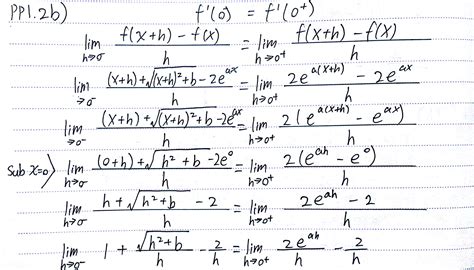 PP1.2b) f'(0⁻) = f'(0⁺)
lim h→0⁻ (f(x+h) - f(x))/h = lim h→0⁺ (f(x+h) - f(x))/h
lim h→0⁻ ((x+h)+√((x+h)²+b) - 2e^(ax))/h = lim h→0⁺ (2e^(a(x+h)) - 2e^(ax))/h
lim h→0⁻ ((x+h)+√((x+h)²+b) - 2e^(ax))/h = lim h→0⁺ 2(e^(a(x+h)) - e^(ax))/h
sub x=0> lim h→0⁻ ((0+h)+√(h²+b) - 2e⁰)/h = lim h→0⁺ 2(e^(ah) - e⁰)/h
lim h→0⁻ (h+√(h²+b) - 2)/h = lim h→0⁺ (2e^(ah) - 2)/h
lim h→0⁻ 1 + √(h²+b)/h - 2/h = lim h→0⁺ 2e^(ah)/h - 2/h